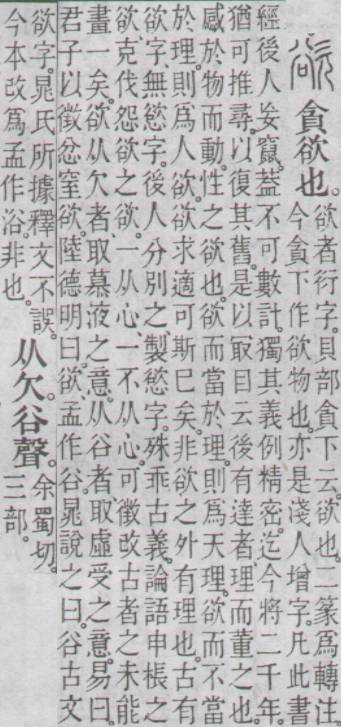 欲 貪欲也。
欲者衍字。貝部貪下云。欲也。二篆爲轉注。
今貪下作欲物也。亦是淺人增字。凡此書
經後人妄竄。葢不可數計。獨其義例精密。迄今將二千年。
猶可推尋。以復其舊。是以冣目云後有達者。理而董之也。
感於物而動。性之欲也。欲而當於理。則爲天理。欲而不當
於理。則爲人欲。欲求適可斯巳矣。非欲之外有理也。古有
欲字。無慾字。後人分別之。製慾字。殊乖古義。論語申棖之
欲。克伐怨欲之欲。一从心。一不从心。可徵改古者之未能
畫一矣。欲从欠者。取慕液之意。从谷者。取虛受之意。易曰。
君子以徵忿窒欲。陸德明曰。欲孟作谷。晁說之曰。谷古文
欲字。晁氏所據釋文不誤。
今本改爲孟作浴。非也。
从欠。谷聲。
余蜀切。
三部。